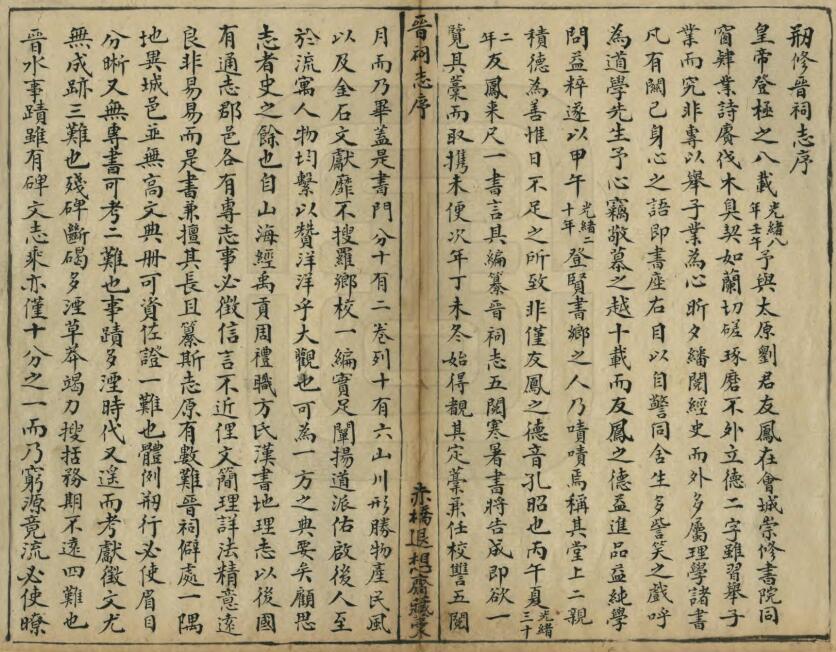 刱修晉祠志序
皇帝登極之八載光緒八年壬午予與太原劉君友鳳在會城崇修書院同
窗肄業詩賡伐木臭契如蘭切磋琢磨不外立德二字雖習舉子
業而究非專以舉子業為心昕夕繙閱經史而外多屬理學諸書
凡有關己身心之語即書座右目以自警同舍生多訾笑之戲呼
為道學先生予心竊敬慕之越十載而友鳳之德益進品益純學
問益粹遂以甲午光緒二十年登賢書鄉之人乃嘖嘖焉稱其堂上二親
積德為善惟日不足之所致非僅友鳳之德音孔昭也丙午夏光緒三十
二年友鳳来尺一書言其編纂晉祠志五閱寒暑書將告成即欲一
覽其藁而取攜未便次年丁未冬始得覩其定藁兼任校讐五閱
晉祠志序
赤橋退想齋藏藁
月而乃畢蓋是書門分十有二卷列十有六山川形勝物產民風
以及金石文獻靡不搜羅鄉校一編實足闡揚道派佑啟後人至
於流寓人物均繫以贊洋洋乎大觀也可為一方之典要矣顧思
志者史之餘也自山海經禹貢周禮職方氏漢書地理志以後國
有通志郡邑各有專志事必徵信言不近俚文簡理詳法精意遠
良非易易而是書兼擅其長且纂斯志原有數難晉祠僻處一隅
地異城邑並無高文典册可資佐證一難也體例刱行必使眉目
分晰又無專書可考二難也事蹟多湮時代又遥而考獻徵文尤
無成跡三難也殘碑斷碣多湮草莽竭力搜括務期不遠四難也
晉水事蹟雖有碑文志乘亦僅十分之一而乃窮源竟流必使瞭